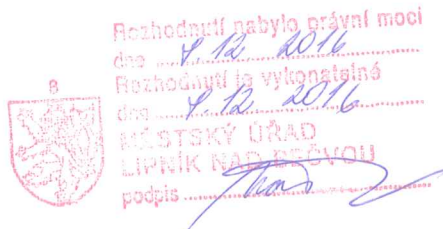 Rozhodnutí nabylo právní moci
dne 7. 12. 2016
Rozhodnutí je vykonatelné
dne 7. 12. 2016
8
MĚSTSKÝ ÚŘAD
LIPNÍK NAD BEČVOU
podpis